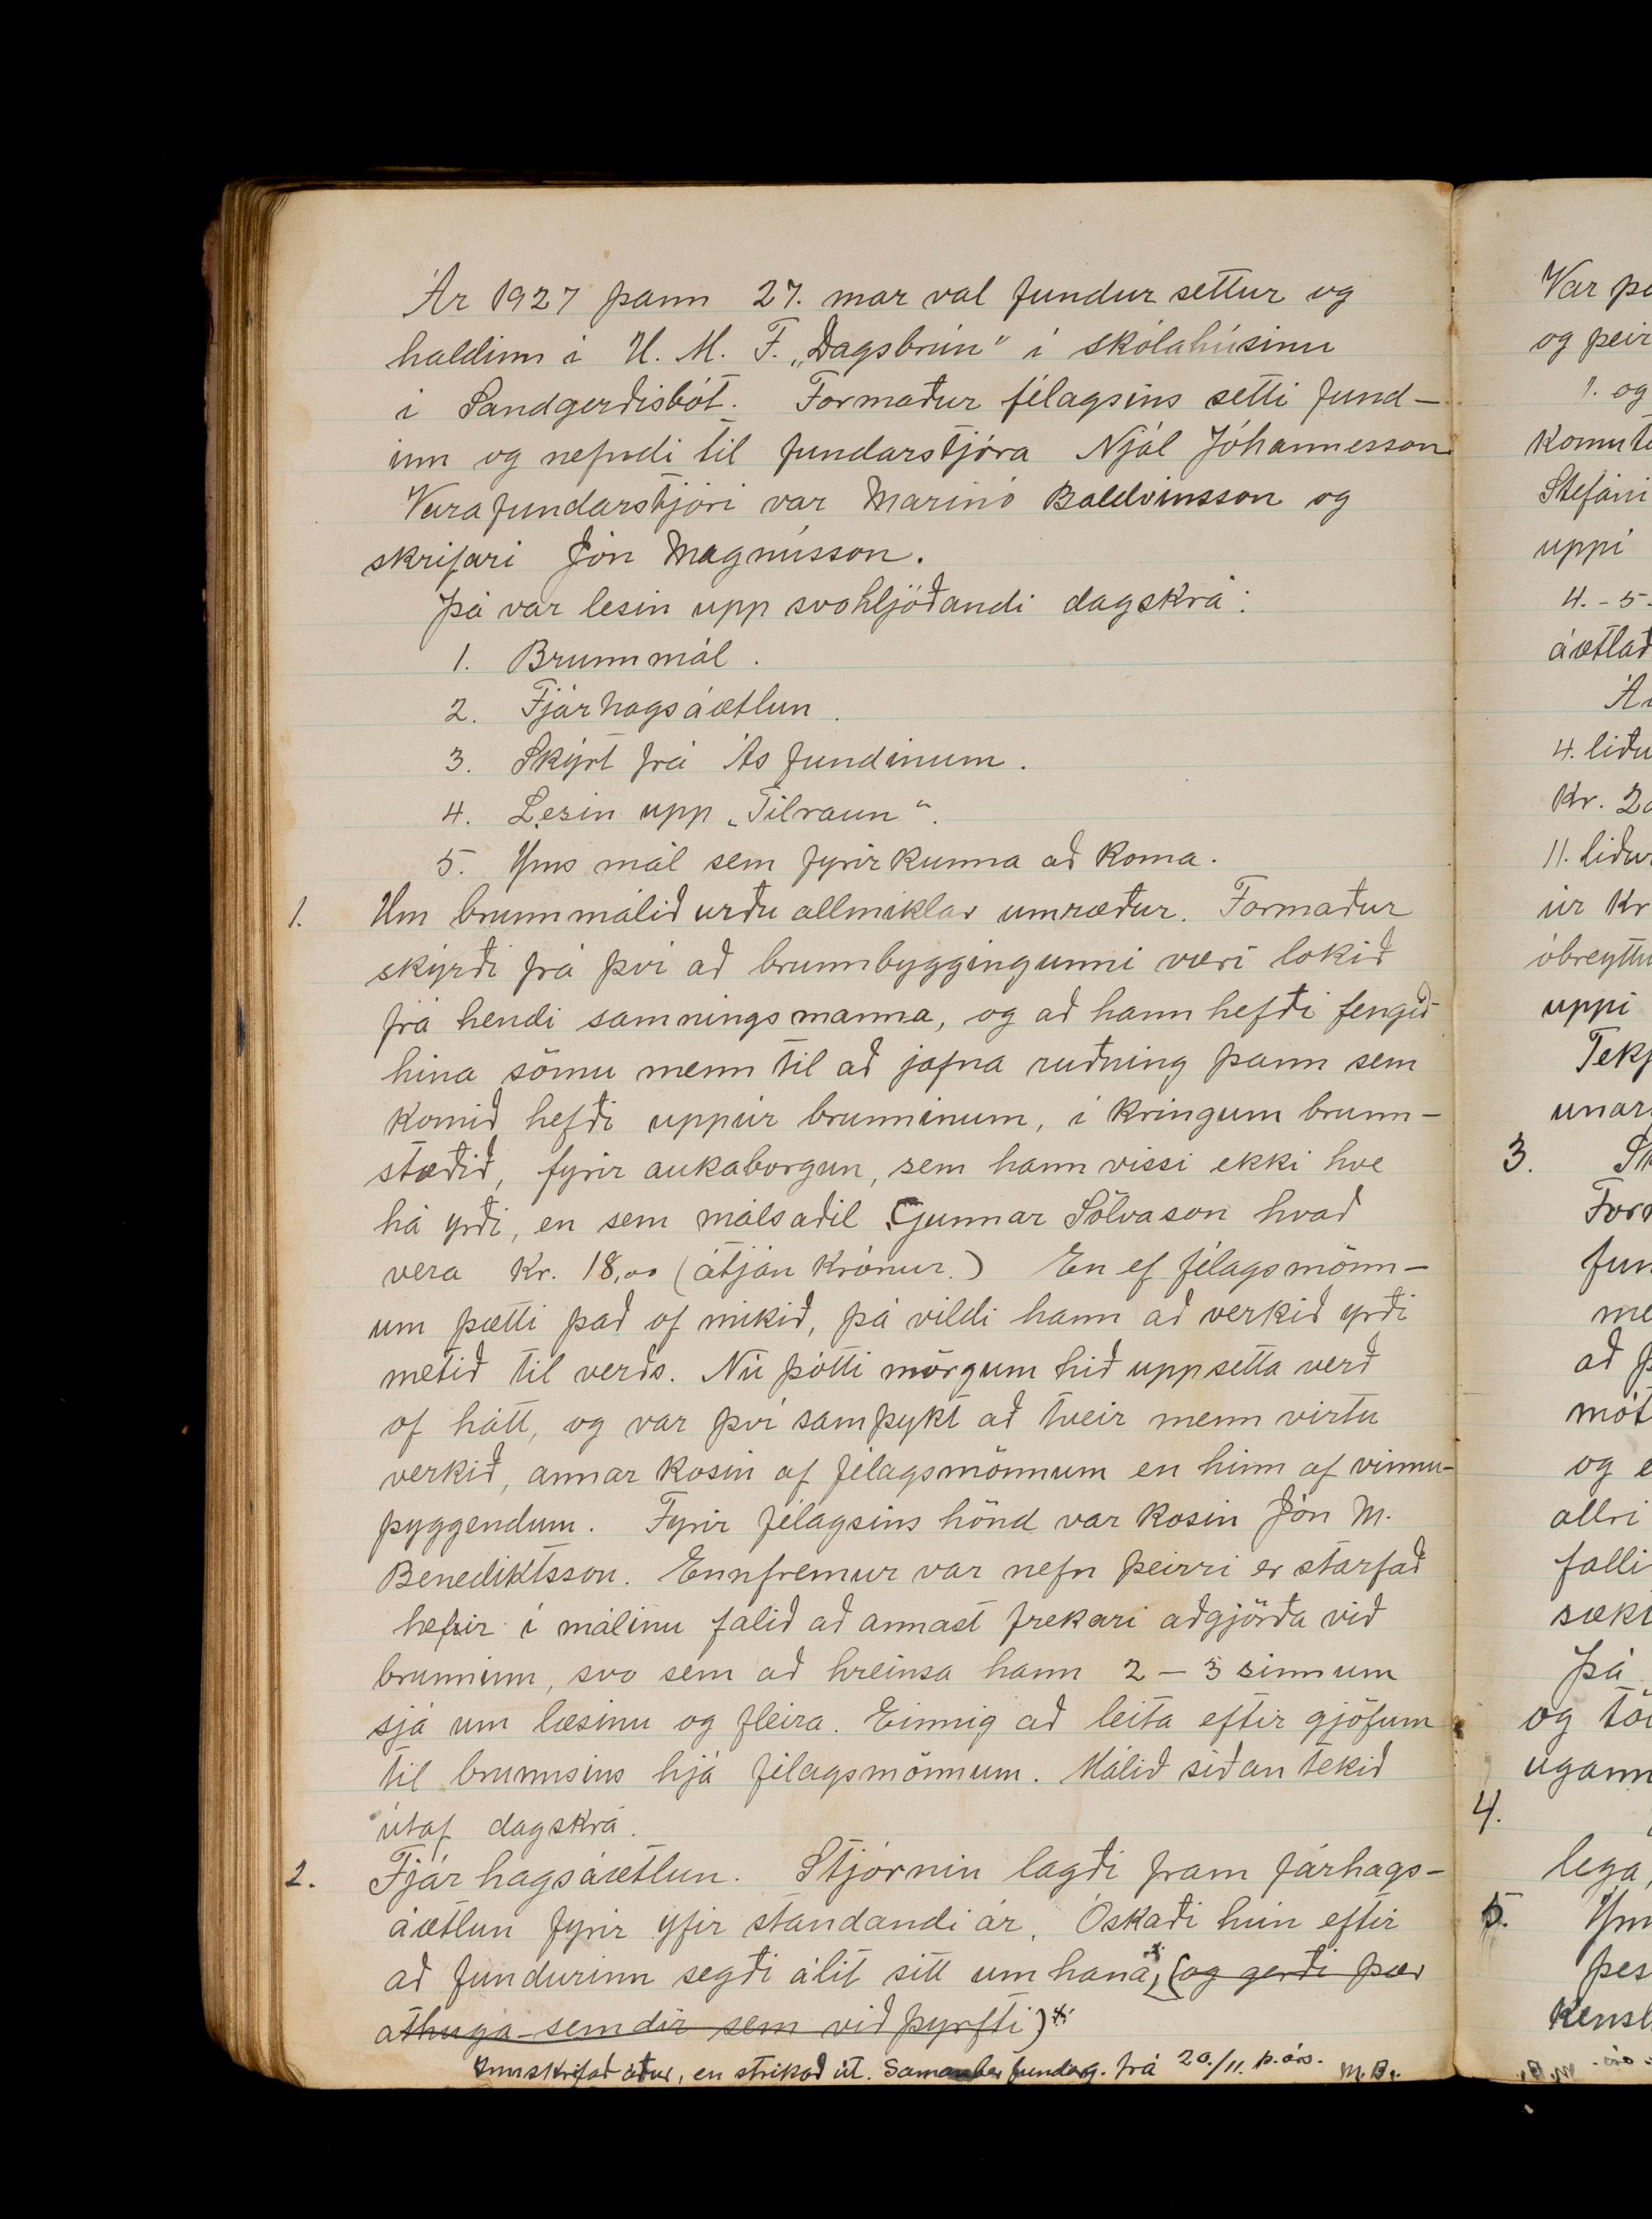 Ár 1927 þann 27. mar val fundur settur og
haldinn í U. M. F. „Dagsbrún" í skólahúsinu
í Sandgerðisbót. Formaður félagsins setti fund-
inn og nefndi til fundarstjóra Njál Jóhannesson
Varafundarstjóri var Marinó Baldvinsson og
skrifari Jón Magnússon.
Þá var lesin upp svohljóðandi dagskrá:
1. Brunnmál.
2. Fjárhagsáætlun.
3. Skýrt frá Ás fundinum.
4. Lesin upp „Tilraun".
5. Yms mál sem fyrir kunna að koma.
1. Um brunnmálið urðu allmiklar umræður. Formaður
skýrði frá því að brunnbyggingunni væri lokið
frá hendi samningsmanna, og að hann hefði fengið
hina sömu menn til að jafna ruðning þann sem
komið hefði uppúr brunninum, í kringum brunn-
stæðið, fyrir aukaborgun, sem hann vissi ekki hve
há yrði, en sem málsaðil Gunnar Sölvason kvað
vera kr. 18,00 (átján krónur.) En ef félagsmönn-
um þætti það of mikið, þá vildi hann að verkið yrði
metið til verðs. Nú þótti mörgum hið uppsetta verð
of hátt, og var því samþykt að tveir menn virtu
verkið, annar kosin af félagsmönnum en hinn af vinnu-
þyggendum. Fyrir félagsins hönd var kosin Jón M.
Benediktsson. Ennfremur var nefn þeirri er starfað
hefir í málinu falið að annast frekari aðgjörða við
brunninn, svo sem að hreinsa hann 2-3 sinnum
sjá um læsinu og fleira. Einnig að leita eftir gjöfum
til brunnsins hjá félagsmönnum. Málið síðan tekið
útaf dagskrá.
2. Fjárhagsáætlun. Stjórnin lagði fram fárhags-
áætlun fyrir yfir standandi ár. Óskaði hún eftir
að fundurinn segði álit sitt um hana, (og gerði þær
athuga-semdir sem við þyrfti)
Innskrifað áður, en strikað út. Samanber fundarg. frá 20./11. þ. árs. M.B.
Var þ
og þeir
1. og
komut
Stefáni
uppi
4.-5.
áætlað
Á
4. liðu
Kr. 2
11. liður
úr kr
óbreyttu
uppi
Tekj
unar
3. Sk
Form
fun
me
að þ
mót
og e
allri
falli
sækt
Þá
og tö
ugann
4.
lega,
5. Ym
þes
kensl